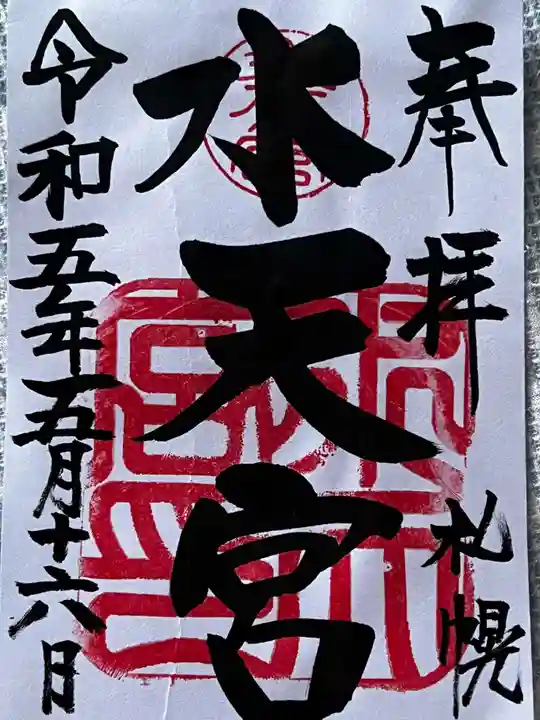 奉拝 札幌
水天宮
令和五年五月十六日